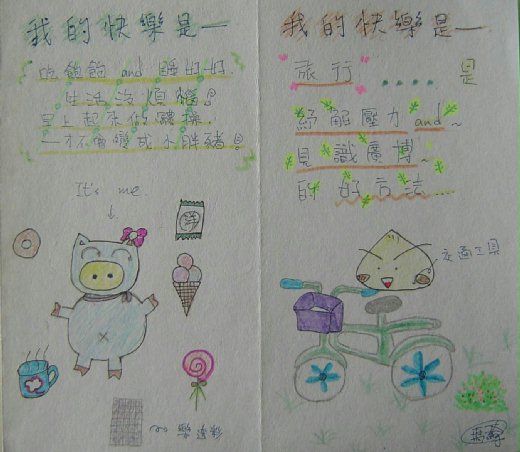 我的快樂是—
吃飽飽 and 睡好好
生活沒煩惱!
早上起來做體操
—才不會變成小胖豬!
It's me.
洋
樂透彩
我的快樂是—
旅行.... 是
紓解壓力 and~
見識廣博~
的好方法....
交通工具